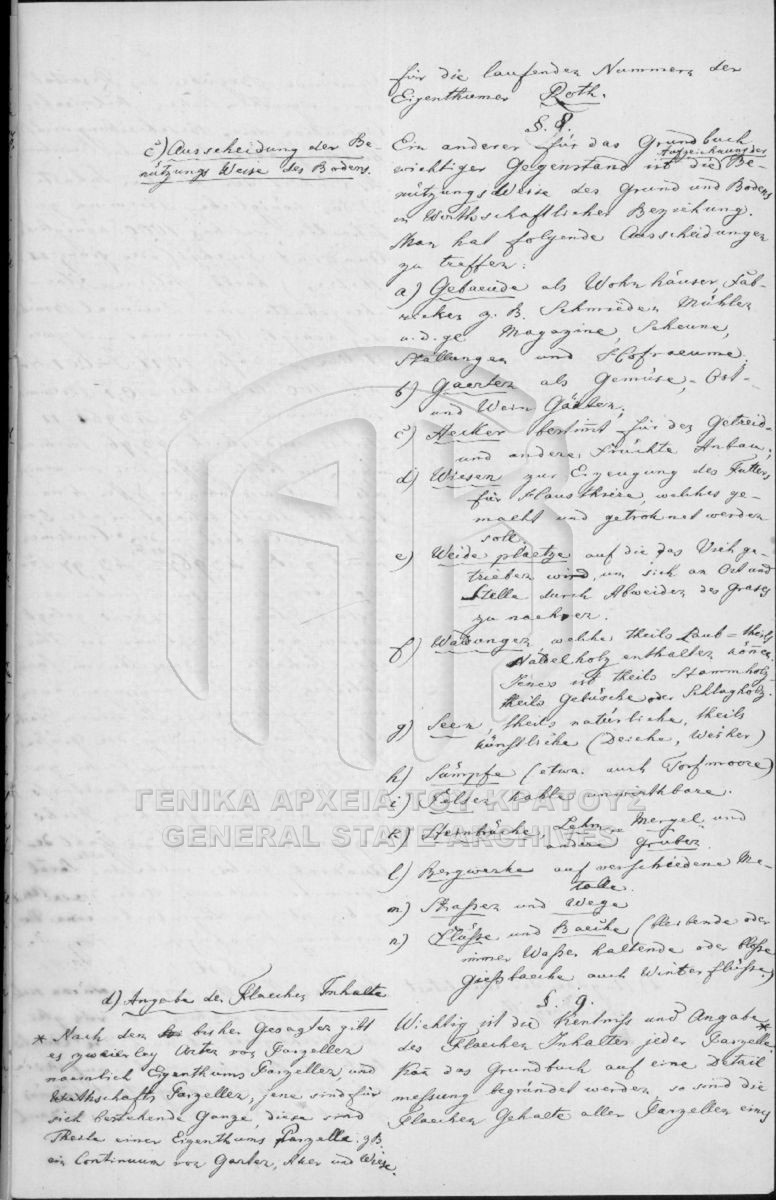 für die laufenden Nummern der
Eigenthümer Roth.
§. 8.
c) Ausscheidung der Be-
nützungs Weise des Bodens.
Ein anderer für das Grundbuch
wichtiger Gegenstand ist die Aufzeichnung der Be-
nützungs Weise des Grund und Bodens
in Wirthschaftlicher Beziehung.
Man hat folgende Ausscheidungen
zu treffen:
a) Gebaeude als Wohnhäuser, Fab-
ricken z. B. Schmieden Mühlen
u. d. gl. Magazine, Scheune,
Stallungen und Hofraeume.
b) Gaerten als Gemüse-, Obst-
und Wein Gärten.
c) Aecker bestimt für den Getreid-
und andere Früchte Anbau;
d) Wiesen zur Erzeugung des Futters
für Hausthiere, welches ge-
maeht und getroknet werden
soll.
e) Weide plaetze auf die das Vieh ge-
trieben wird, um sich an Ort und
Stelle durch Abweiden des Grases
zu naehren.
f) Waldungen welche theils Laub = theils
Nadelholz enthalten können.
Jenes ist theils Stammholz-
theils Gebüsche oder Schlagholz.
g) Seen, theils natürliche, theils
künstliche (Deiche, Weiher)
h) Sümpfe (etwa auch Torfmoore)
i) Felsen kahle unwirthbare.
k) Steinbrüche, Lehm- Mergel und
andere Gruben.
l) Bergwerke auf verschiedene Me-
talle.
m) Straßen und Wege
n) Flüsse und Baeche (bleibende oder
immer Wasser haltende oder bloße
Gießbaeche auch Winterflüsse)
§. 9.
d) Angabe des Flaechen Inhalts
Wichtig ist die Kentniß und Angabe *
des Flaechen Inhaltes jeder Parzelle.
Kan das Grundbuch auf eine Detail
messung begründet werden, so sind die
Flaechen Gehalte aller Parzellen eines
* Nach den bisher Gesagten gibt
es zweierley Arten von Parzellen
naemlich Eigenthums Parzellen, und
Wirthschafts Parzellen, jene sind für
sich bestehende Ganze, diese sind
Theile einer Eigenthums Parzelle. z B.
ein Continuum von Garten, Aker und Wiese.
ΓΕΝΙΚΑ ΑΡΧΕΙΑ ΤΟΥ ΚΡΑΤΟΥΣ
GENERAL STATE ARCHIVES